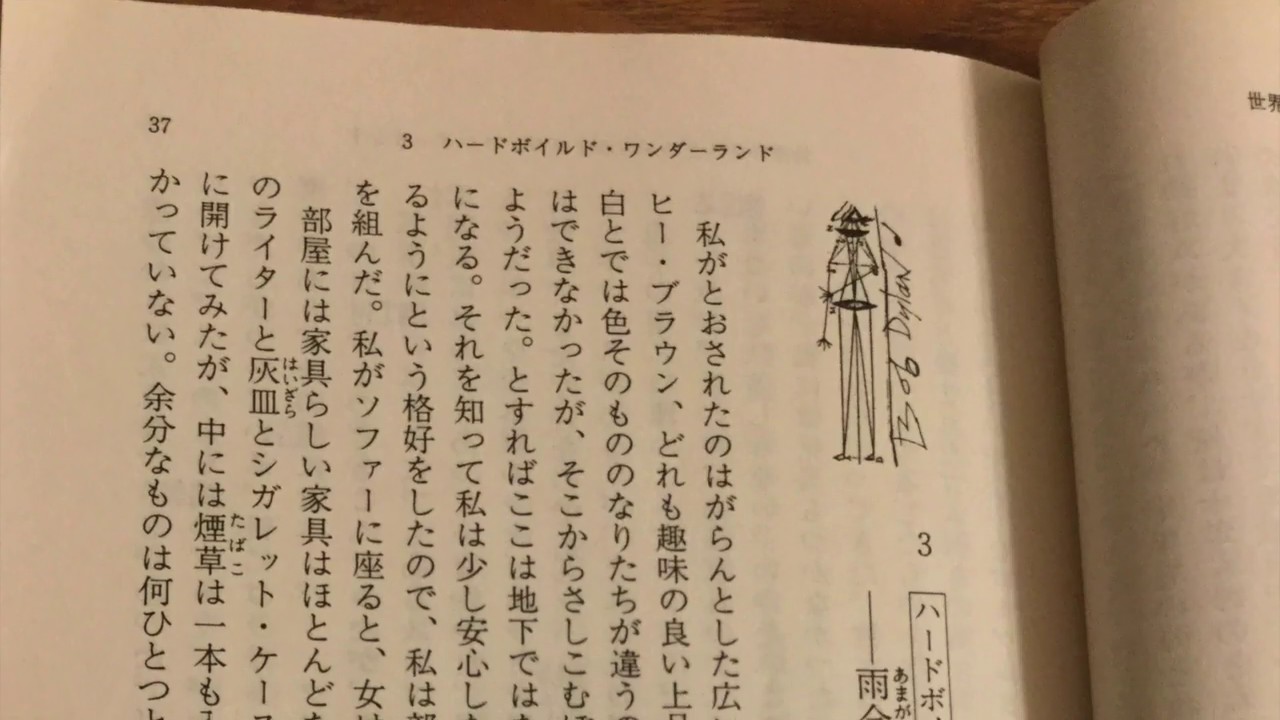 世界
3 ハードボイルド・ワンダーランド
37
Bob Dylan
3
ハードボ
――雨合
あまが
私がとおされたのはがらんとした広
ヒー・ブラウン、どれも趣味の良い上品
白とでは色そのもののなりたちが違うの
はできなかったが、そこからさしこむ
ようだった。とすればここは地下では
になる。それを知って私は少し安心し
るようにという格好をしたので、私は部
を組んだ。私がソファーに座ると、女は
部屋には家具らしい家具はほとんど
のライターと灰皿とシガレット・ケース
はいざら
に開けてみたが、中には煙草は一本も
たばこ
かっていない。余分なものは何ひとつと